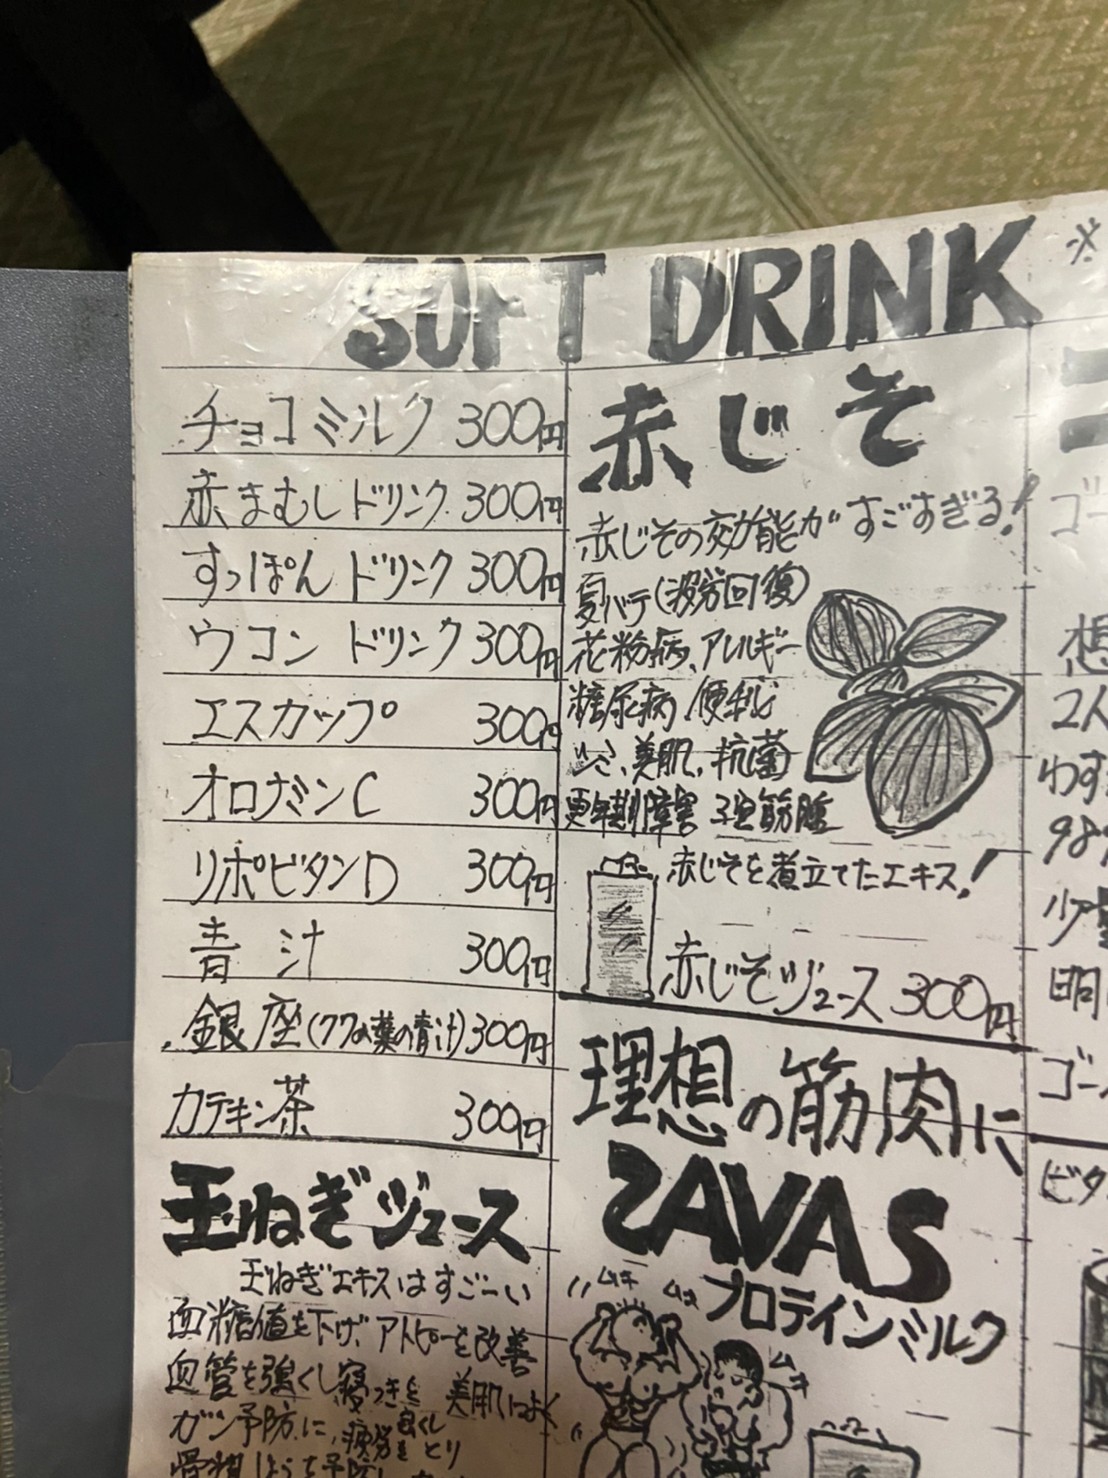 SOFT DRINK ※
チョコミルク 300円
赤まむしドリンク 300円
すっぽんドリンク 300円
ウコン ドリンク 300円
エスカップ 300円
オロナミンC 300円
リポビタンD 300円
青汁 300円
銀座(クワの葉の青汁) 300円
カテキン茶 300円
玉ねぎジュース
玉ねぎエキスはすごーい
血糖値を下げ、アトピーを改善
血管を強くし寝つきを良くし
美肌によく
ガン予防に、疲労をとり
赤じそ
赤じその効能がすごすぎる!
夏バテ(疲労回復)
花粉病、アレルギー
糖尿病、便秘
シミ、美肌、抗菌
更年期障害
赤じそを煮立てたエキス!
赤じそジュース 300円
理想の筋肉に
ZAVAS
プロテインミルク
ムキ
ムキ
ムキ
ゴー
想
2人
わす
989
少
明
ゴー
ビタ